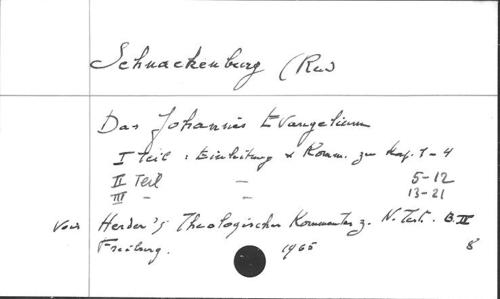 Schnackenburg (Rud)
Das Johannes Evangelium
I Teil : Einleitung & Komm. zu Kap. 1-4
II Teil - 5-12
III - - 13-21
Voir Herder's Theologischer Kommentar z. N. Test. B. IV
Freiburg. 1965 8